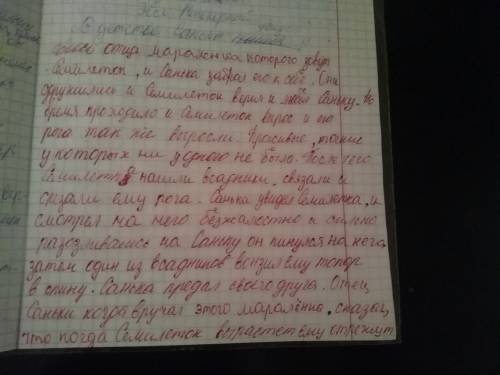 В детстве Санька
отца мараленка которого зовут
Семилеток, и Санька забрал его к себе. Они
сдружились и Семилеток верил и любил Саньку. Но
время проходило и Семилеток вырос и его
рога так же выросли. Красивые, тонкие
у которых ни у одного не было. После чего
Семилетка нашли всадники, связали и
срезали ему рога. Санька увидел Семилетка, и
смотрел на него безжалостно и сильно
разозлившись на Саньку он кинулся на него
затем один из всадников вонзил ему топор
в спину. Санька предал своего друга. Отец
Саньки когда вручал этого мараленка, сказал,
что когда Семилеток вырастет ему отрежут